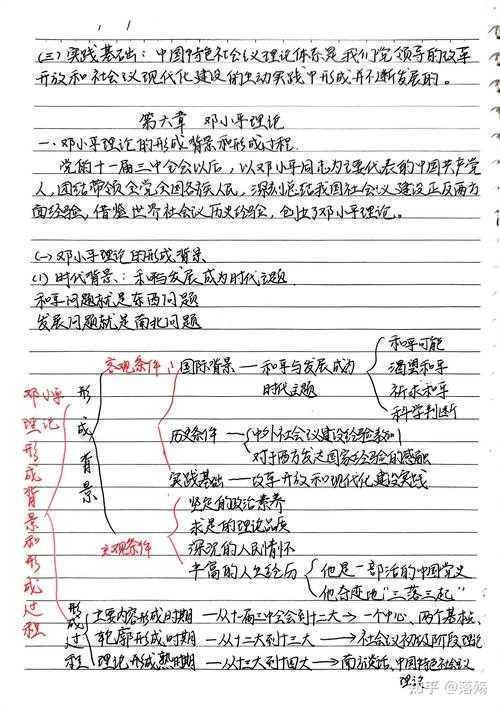 (三)实践基础:中国特色社会主义理论体系是我们党领导的改革
开放和社会主义现代化建设的生动实践中形成并不断发展的。
第六章 邓小平理论
一、邓小平理论的形成背景和形成过程
党的十一届三中全会以后,以邓小平同志为主要代表的中国共产党
人,团结带领全党全国各族人民,深刻总结我国社会主义建设正反两方
面经验,借鉴世界社会主义历史经验,创立了邓小平理论。
(一)邓小平理论的形成背景
(1)时代背景:和平与发展成为时代主题
和平问题就是东西问题
发展问题就是南北问题
邓小平理论形成背景和形成过程
形成背景
客观条件
国际背景—和平与发展成为
时代主题
和平可能
渴望和平
祈求和平
科学判断
历史条件—中外社会主义建设经验教训
对于西方发达国家经验的借鉴
实践基础—改革开放和现代化建设实践
主观条件
坚定的政治素养
求是的理论品质
深沉的人民情怀
丰富的人生经历
他是一部活的中国党史
他奇迹地"三落三起"
形成过程
主要内容形成时期—从十一届三中全会到十二大→一个中心、两个基本点
轮廓形成时期—从十二大到十三大→社会主义初级阶段理论
理论形成成熟时期—从十三大到十四大→南方谈话、中国特色社会主义
理论
知乎 @落殇